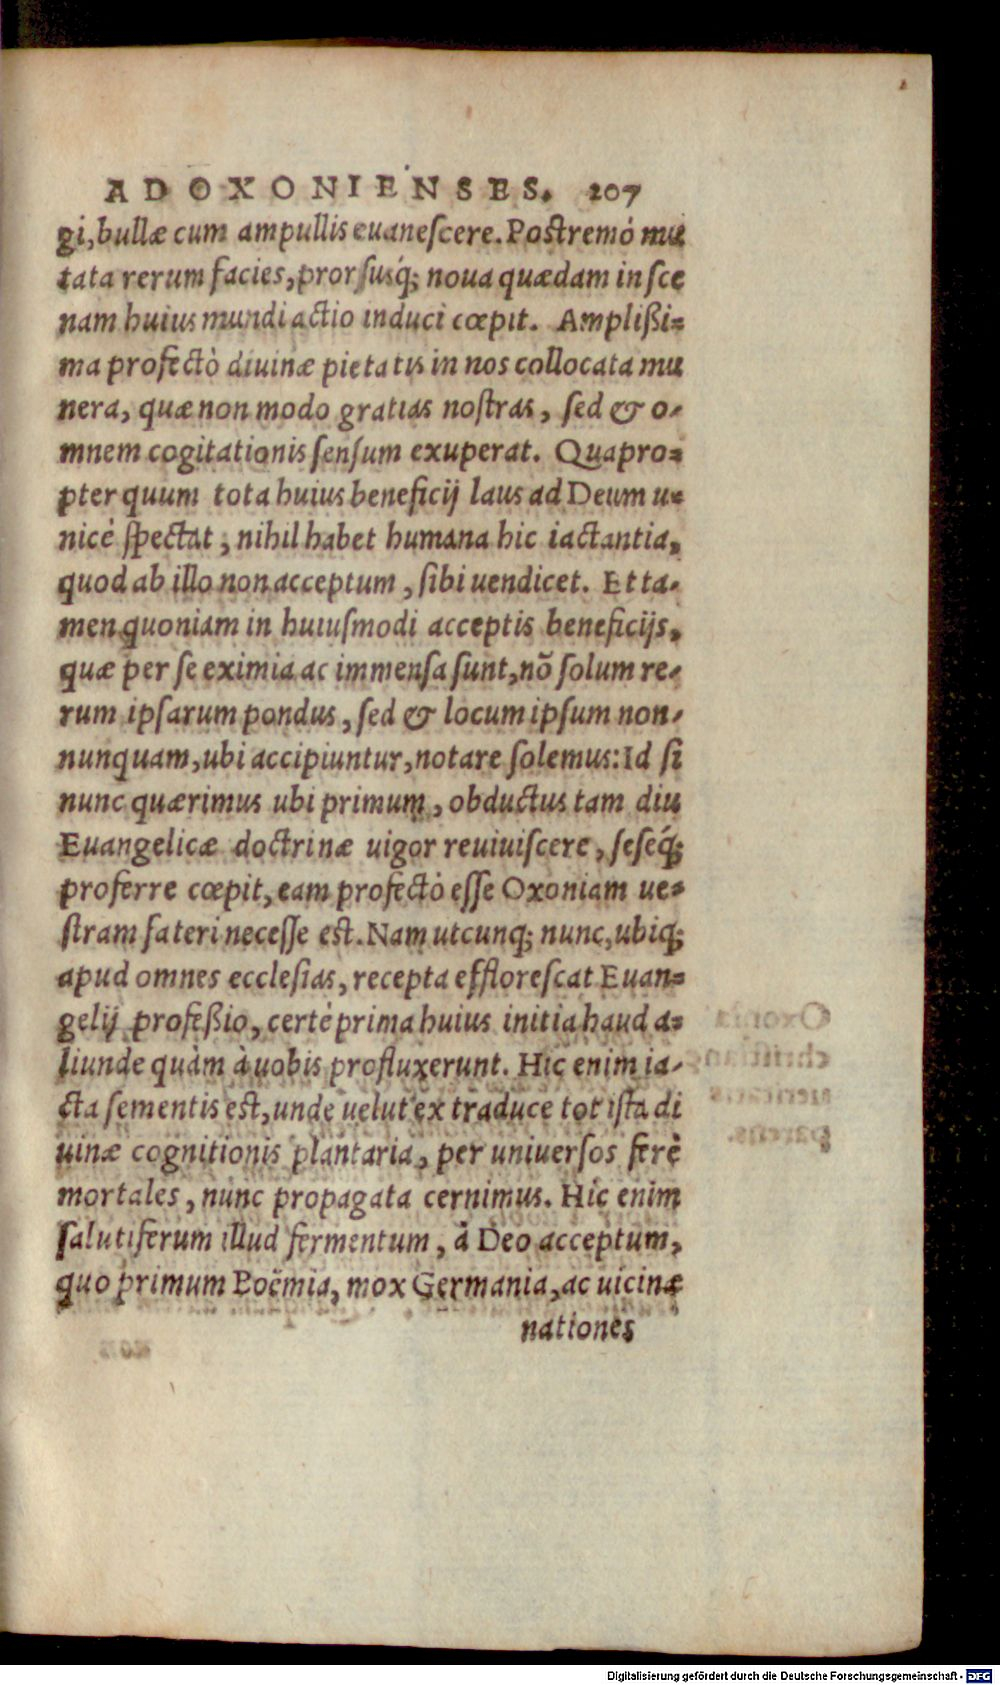 AD OXONIENSES. 207
gi, bullæ cum ampullis euaneſcere. Poſtremò mu
tata rerum facies, prorſusq́; noua quædam in ſce
nam huius mundi actio induci cœpit. Ampliſsi=
ma profectò diuinæ pietatis in nos collocata mu
nera, quæ non modo gratias noſtras, ſed & o-
mnem cogitationis ſenſum exuperat. Quapro=
pter quum tota huius beneficij laus ad Deum u=
nicè ſpectat, nihil habet humana hic iactantia,
quod ab illo non acceptum, ſibi uendicet. Et ta-
men quoniam in huiuſmodi acceptis beneficijs,
quæ per ſe eximia ac immenſa ſunt, nō ſolum re-
rum ipſarum pondus, ſed & locum ipſum non-
nunquam, ubi accipiuntur, notare ſolemus: Id ſi
nunc quærimus ubi primum, obductus tam diu
Euangelicæ doctrinæ uigor reuiuiſcere, ſeſeq́;
proferre cœpit, eam profectò eſſe Oxoniam ue=
ſtram fateri neceſſe eſt. Nam utcunq; nunc, ubiq;
apud omnes eccleſias, recepta effloreſcat Euan=
gelij profeſsio, certè prima huius initia haud a=
liunde quàm à uobis profluxerunt. Hic enim ia-
cta ſementis eſt, unde uelut ex traduce tot iſta di
uinæ cognitionis plantaria, per uniuerſos ferè
mortales, nunc propagata cernimus. Hic enim
ſalutiferum illud fermentum, à Deo acceptum,
quo primum Boëmia, mox Germania, ac uicinæ
nationes
Digitalisierung gefördert durch die Deutsche Forschungsgemeinschaft - DFG